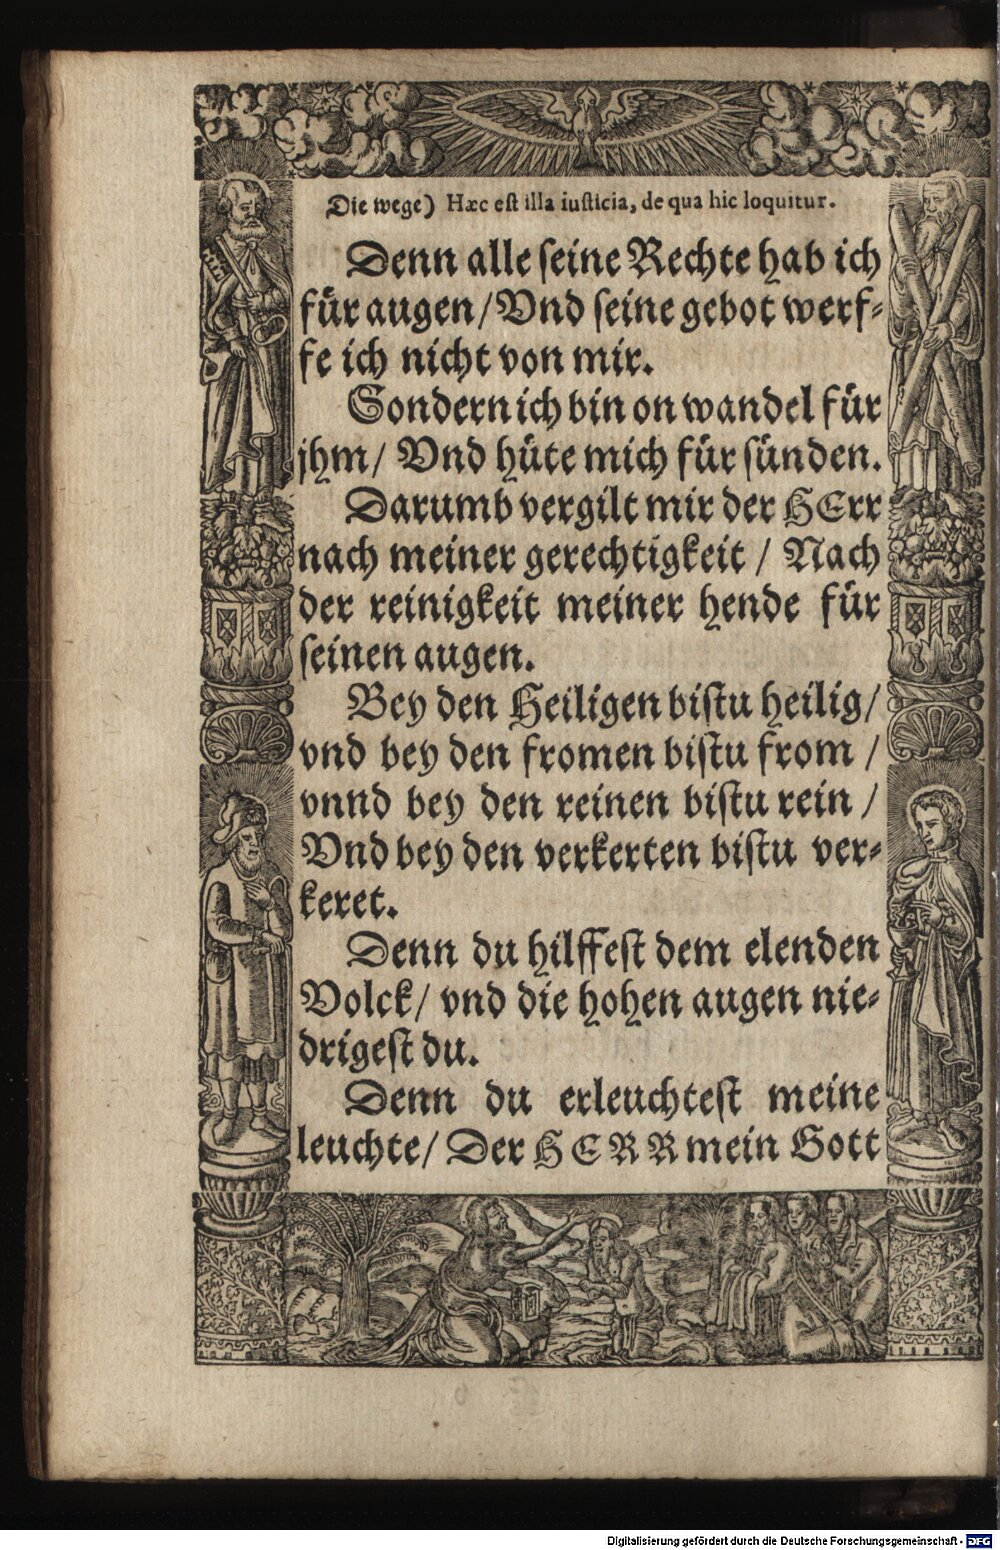 Die wege) Hæc est illa iusticia, de qua hic loquitur.
Denn alle seine Rechte hab ich
für augen/Vnd seine gebot werf-
fe ich nicht von mir.
Sondern ich bin on wandel für
jhm/ Vnd hüte mich für sünden.
Darumb vergilt mir der HErr
nach meiner gerechtigkeit / Nach
der reinigkeit meiner hende für
seinen augen.
Bey den Heiligen bistu heilig/
vnd bey den fromen bistu from /
vnnd bey den reinen bistu rein /
Vnd bey den verkerten bistu ver-
keret.
Denn du hilffest dem elenden
Volck/ vnd die hohen augen nie-
drigest du.
Denn du erleuchtest meine
leuchte/ Der HERR mein Gott
Digitalisierung gefördert durch die Deutsche Forschungsgemeinschaft - DFG